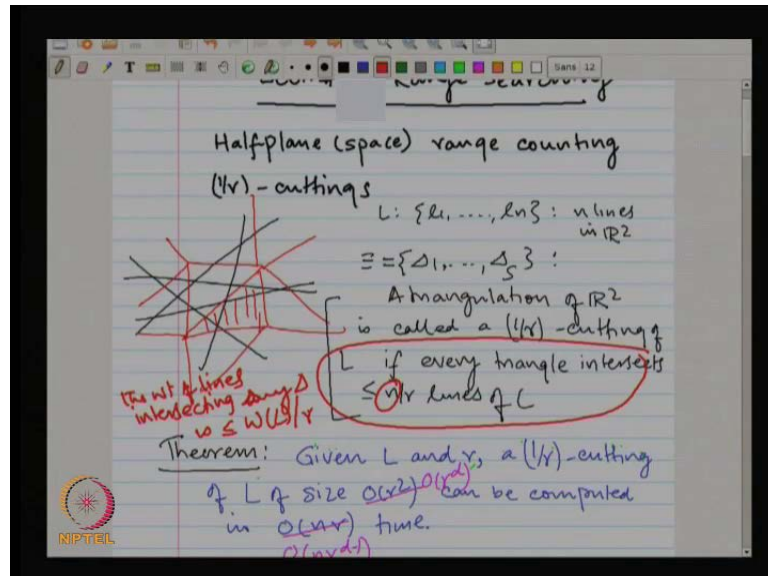 Sans 12
Range Searching
Halfplane (space) range counting
(1/r)-cuttings
L: {l1, ...., ln} : n lines
in ℝ2
Ξ = {Δ1, ..., Δs} :
A triangulation of ℝ2
is called a (1/r)-cutting of
L if every triangle intersects
≤ n/r lines of L
The wt of lines
intersecting any Δ
is ≤ W(L)/r
Theorem: Given L and r, a (1/r)-cutting
of L of size O(r2) O(rd) can be computed
in O(nr) time.
O(nrd-1)
NPTEL